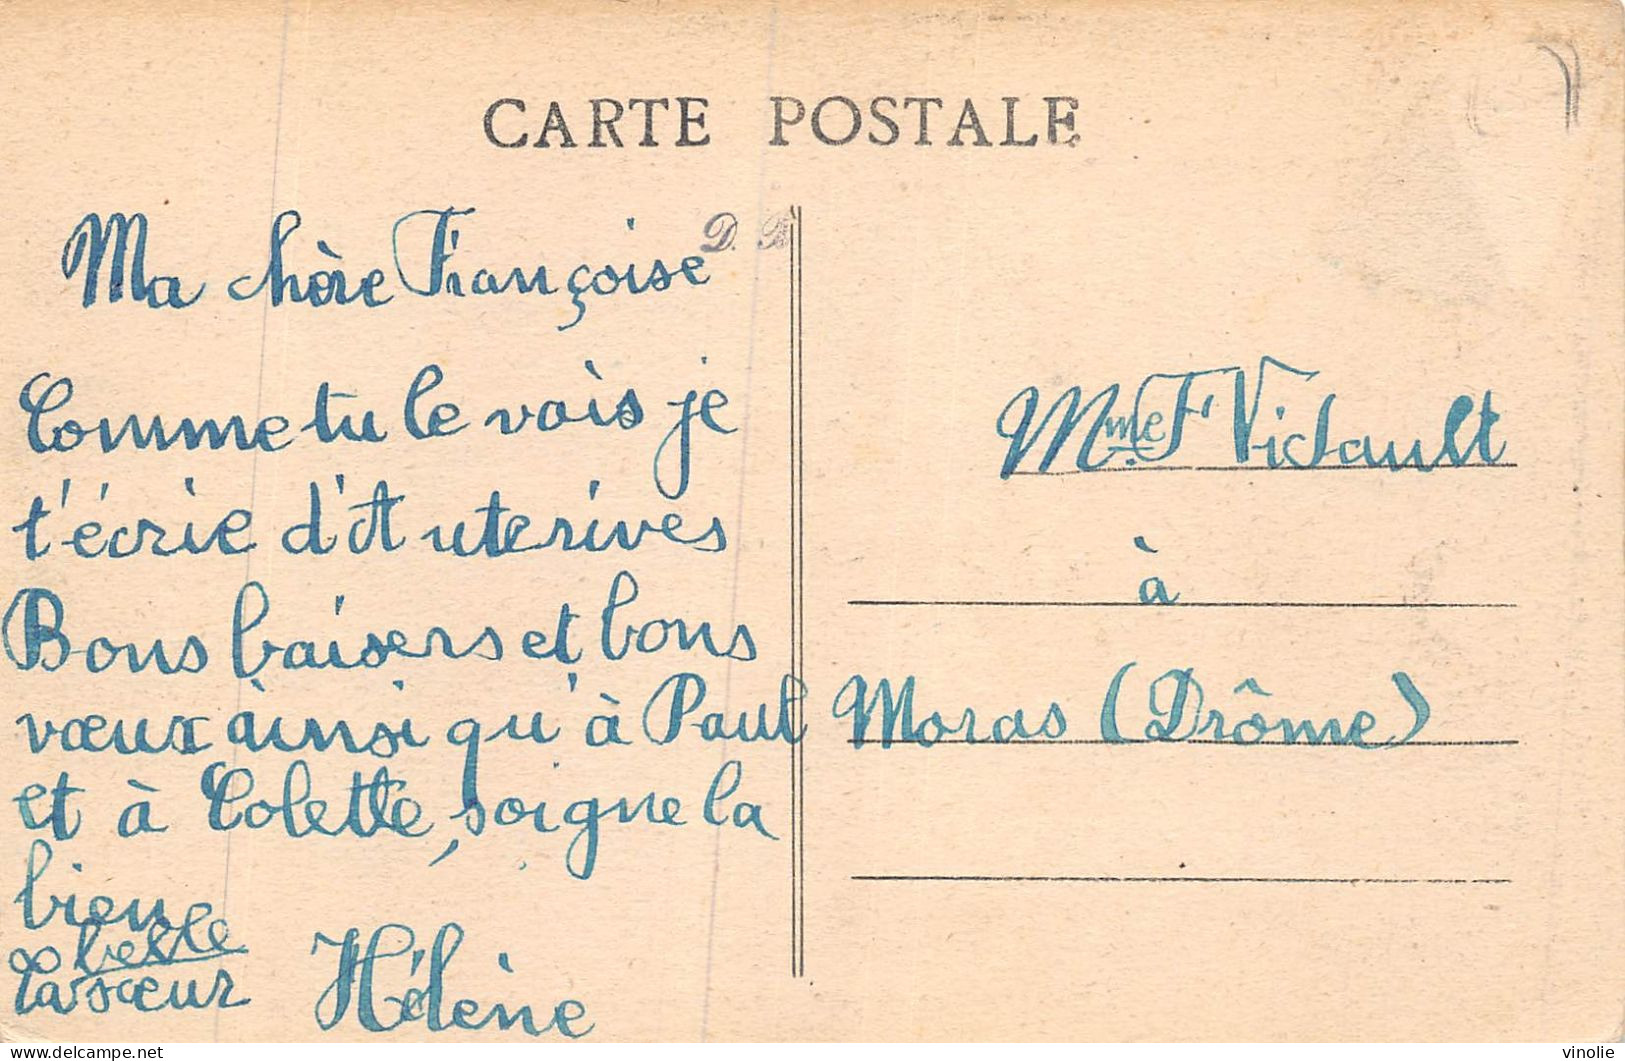 CARTE POSTALE
D. B
Ma chère Françoise
Comme tu le vois je
t'écrie d'Auterives
Bons baisers et bons
vœux ainsi qu'à Paul
et à Colette, soigne la
bien
belle
Ta sœur Hélène
Mme F Vidault
à
Moras (Drôme)
delcampe.net
vinolie